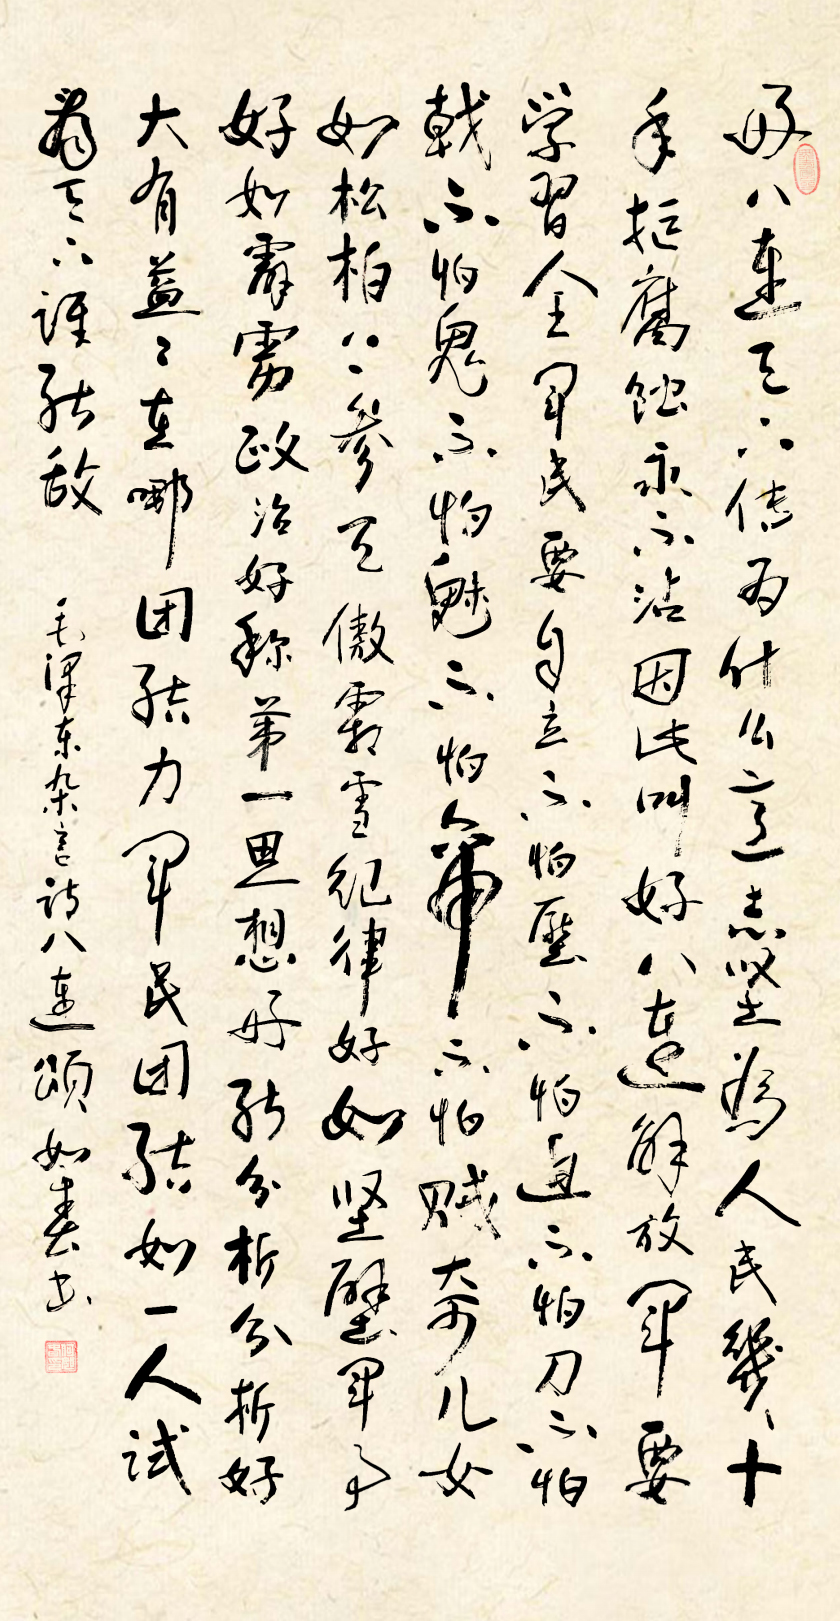 好八连天下传为什么意志坚為人民幾十
年拒腐蚀永不沾因此叫好八连解放军要
学習全军民要自立不怕壓不怕迫不怕刀不怕
戟不怕鬼不怕魅不怕帝不怕贼奇儿女
如松柏上参天傲霜雪纪律好如坚壁军事
好如霹雳政治好称第一思想好能分析分析好
大有益々在哪团结力军民团结如一人试
看天下谁能敌
毛泽东杂言诗八连颂如春书